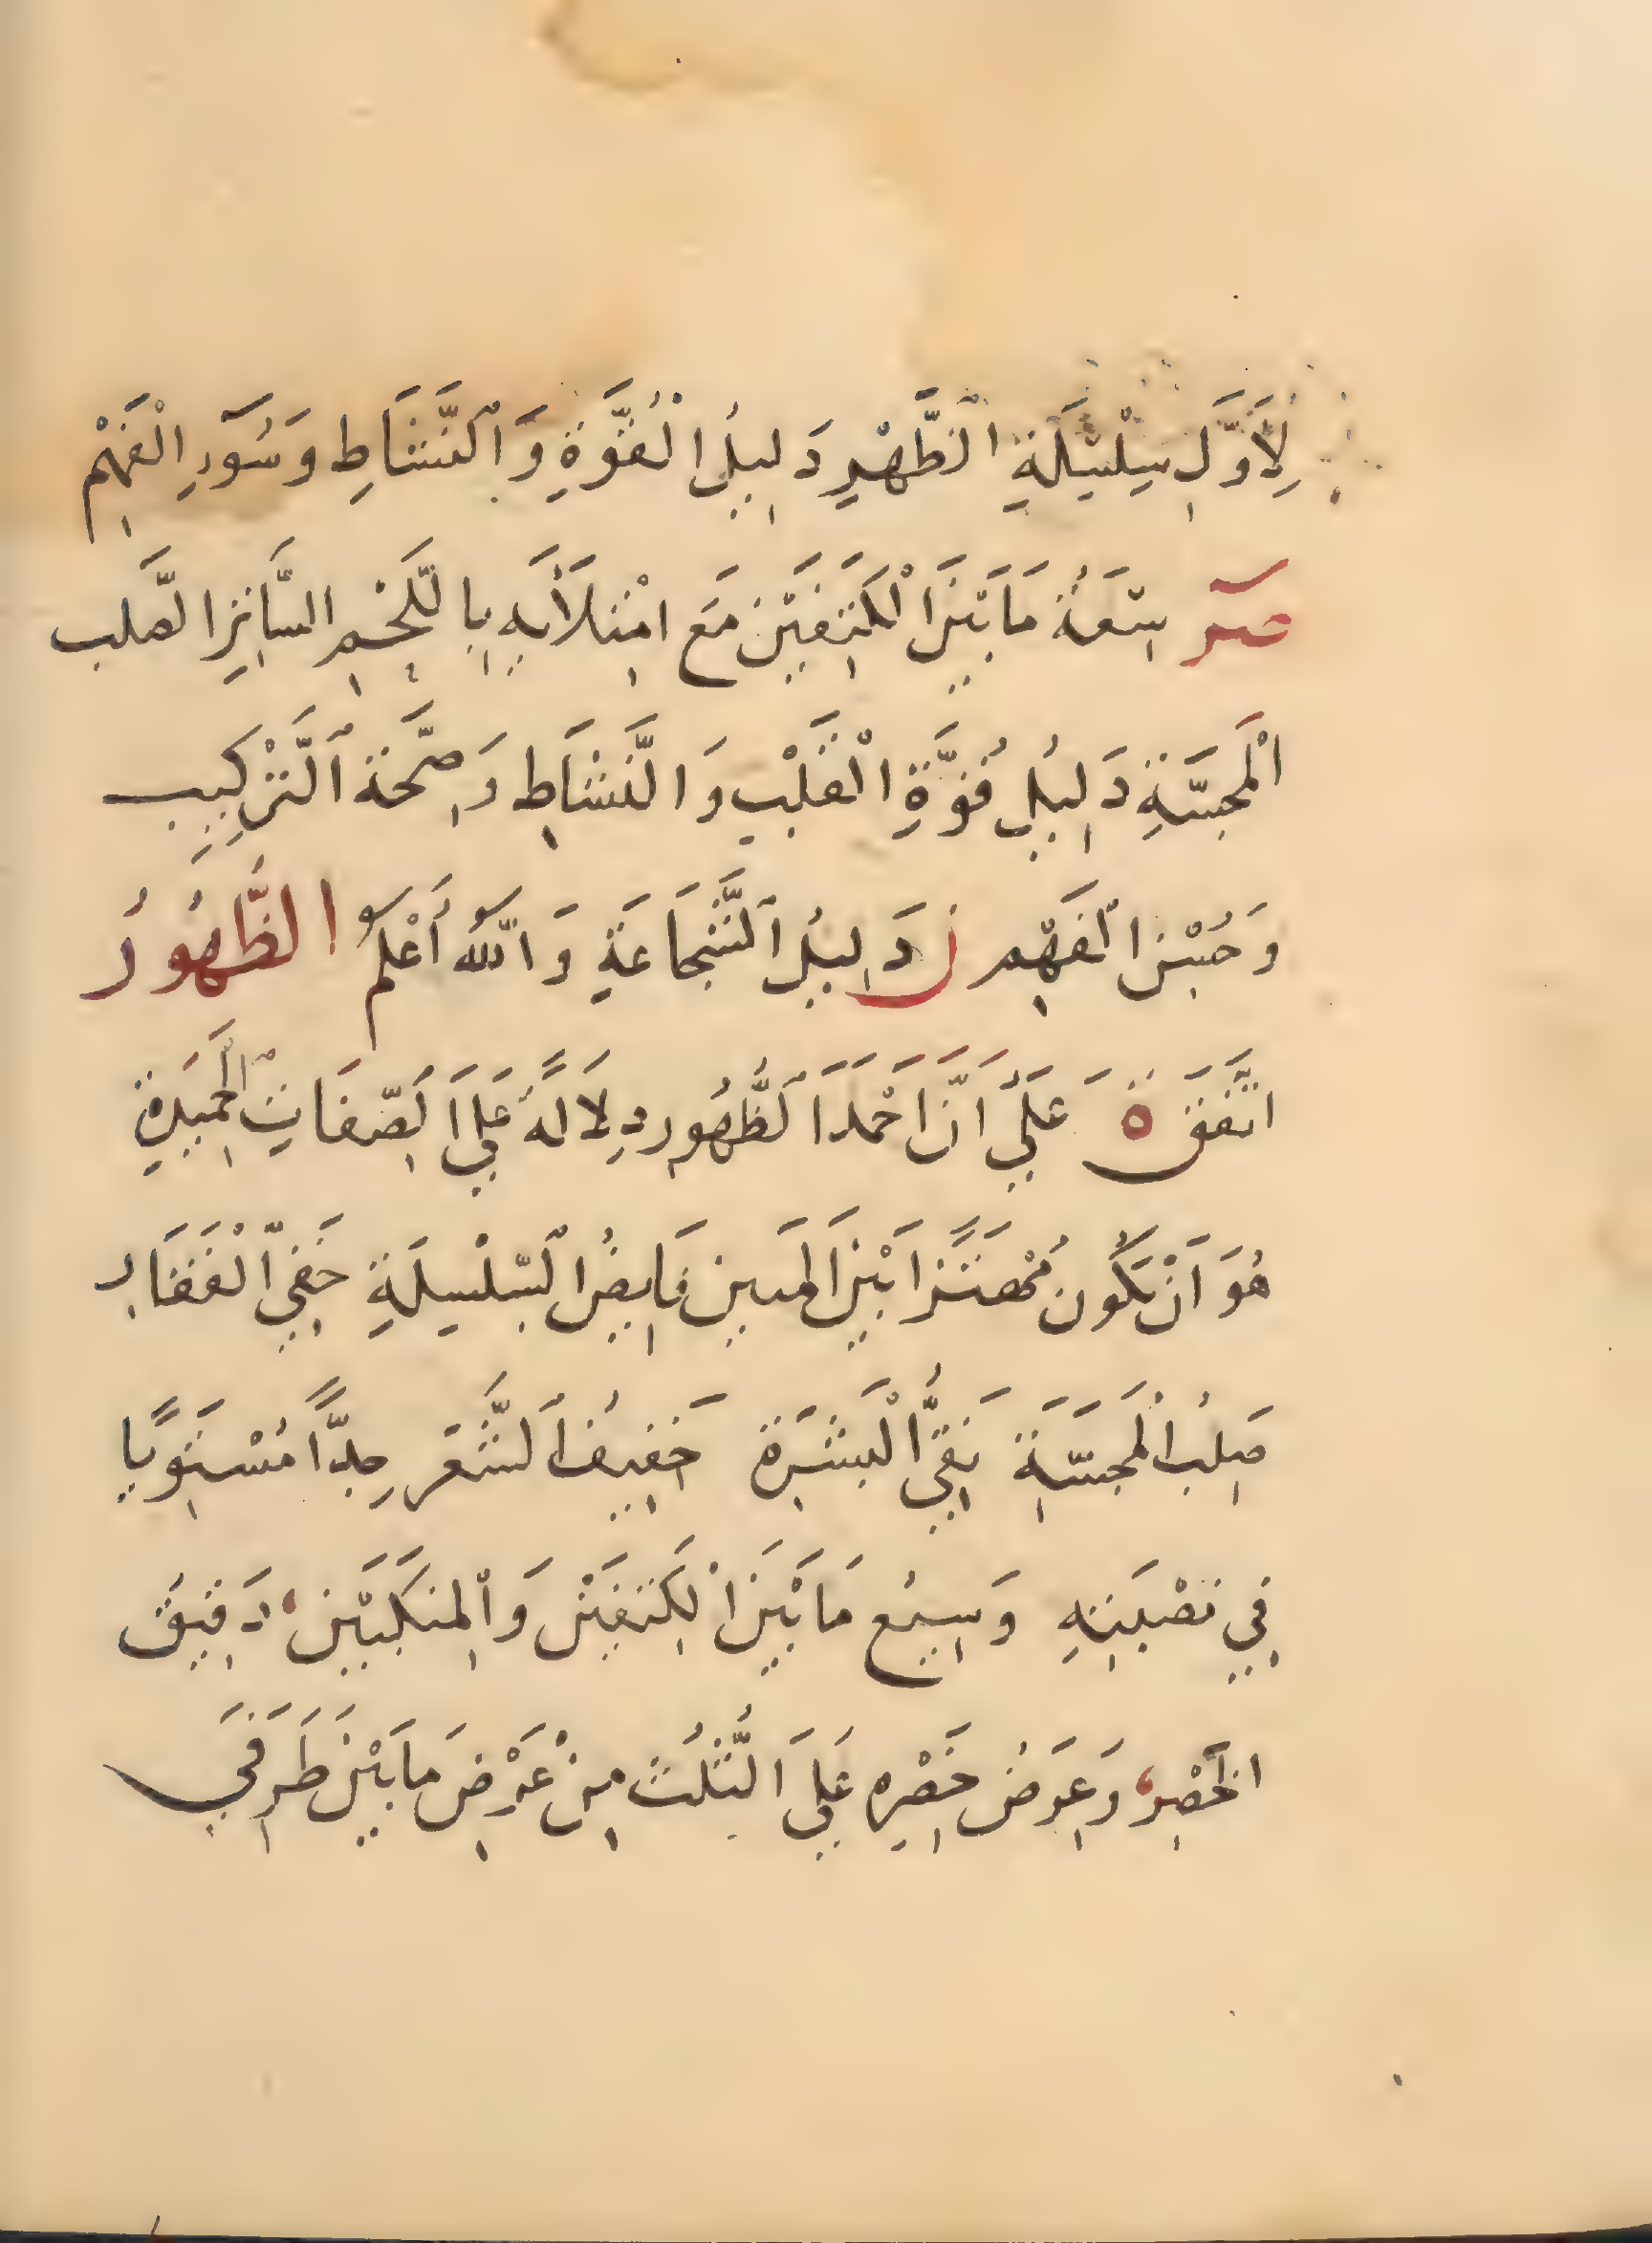 لِأَوَّلِ سِلْسِلَةِ الظَّهْرِ دَلِيلُ الْقُوَّةِ وَالنَّشَاطِ وَسُوءِ الْفَهْمِ
سَعَةُ مَا بَيْنَ الْكَتِفَيْنِ مَعَ امْتِلَائِهِ بِاللَّحْمِ الصلب
الْمَجَسَّةِ دَلِيلُ قُوَّةِ الْقَلْبِ وَالنَّشَاطِ وَصِحَّةِ التَّرْكِيبِ
وَحُسْنِ الْفَهْمِ ن دَلِيلُ الشَّجَاعَةِ وَاللهُ أَعْلَمُ الظُّهُورُ
اتَّفَقَ ه عَلَى أَنَّ أَحْمَدَ الظُّهُورِ دِلَالَةً عَلَى الصِّفَاتِ الْحَمِيدَةِ
هُوَ أَنْ يَكُونَ بَيْنَ السِّلْسِلَةِ خَفِيَّ الْفَقَارِ
صَلِبَ الْمَجَسَّةِ نَقِيَّ الْبَشَرَةِ خَفِيفَ الشَّعَرِ جِدًّا مُسْتَوِيًا
فِي نَصْبَتِهِ وَسِيعَ مَا بَيْنَ الْكَتِفَيْنِ وَالْمَنْكِبَيْنِ دَقِيقَ
الْخَصْرِ وَعِرَضُ خَصْرِهِ عَلَى الثُّلُثِ مِنْ عَرْضِ مَا بَيْنَ طَرَفَيْ